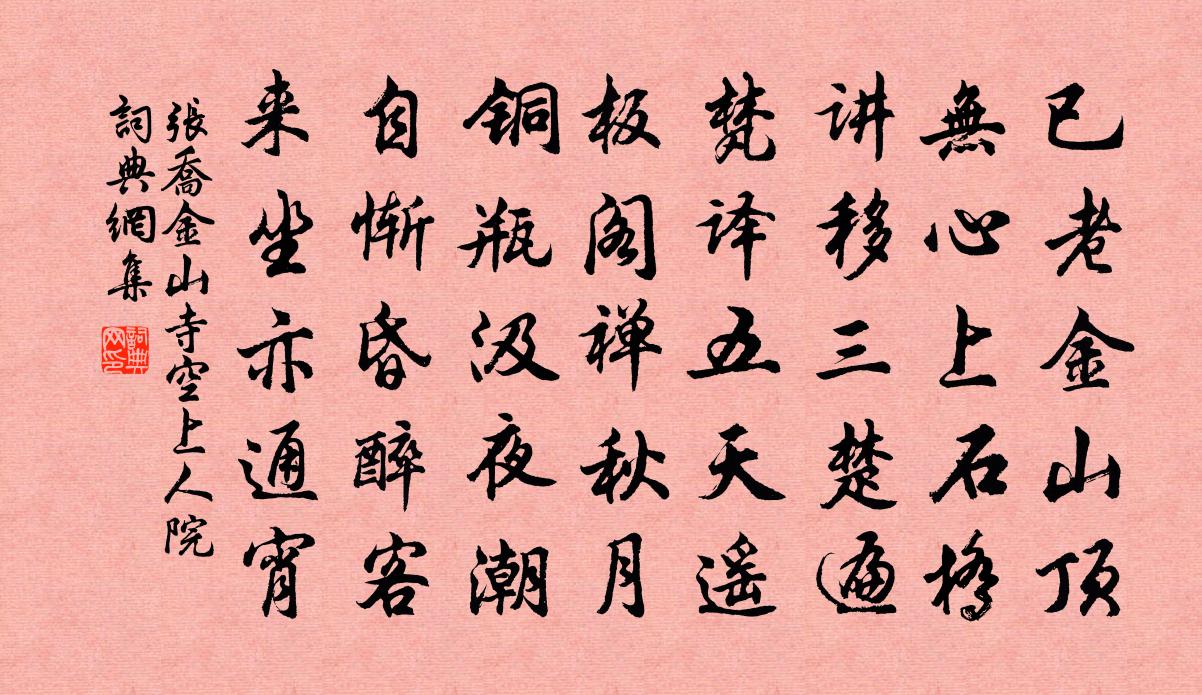 已老金山顶
無心上石橋
讲移三楚遍
梵译五天遥
板阁禅秋月
铜瓶汲夜潮
自惭昏醉客
来坐亦通宵
張喬金山寺空上人院
詞典網集
詞典网印